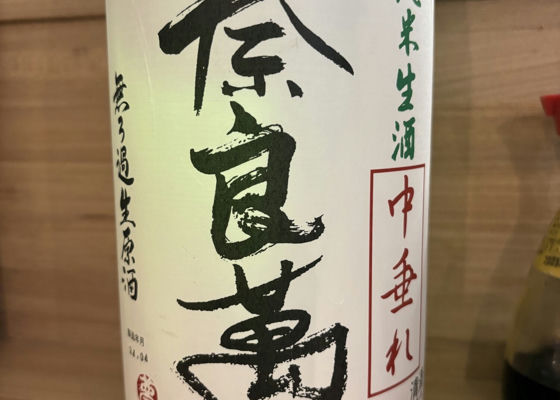 純米生酒
中垂れ
奈良萬
無ろ過生原酒
製造年月
24.04